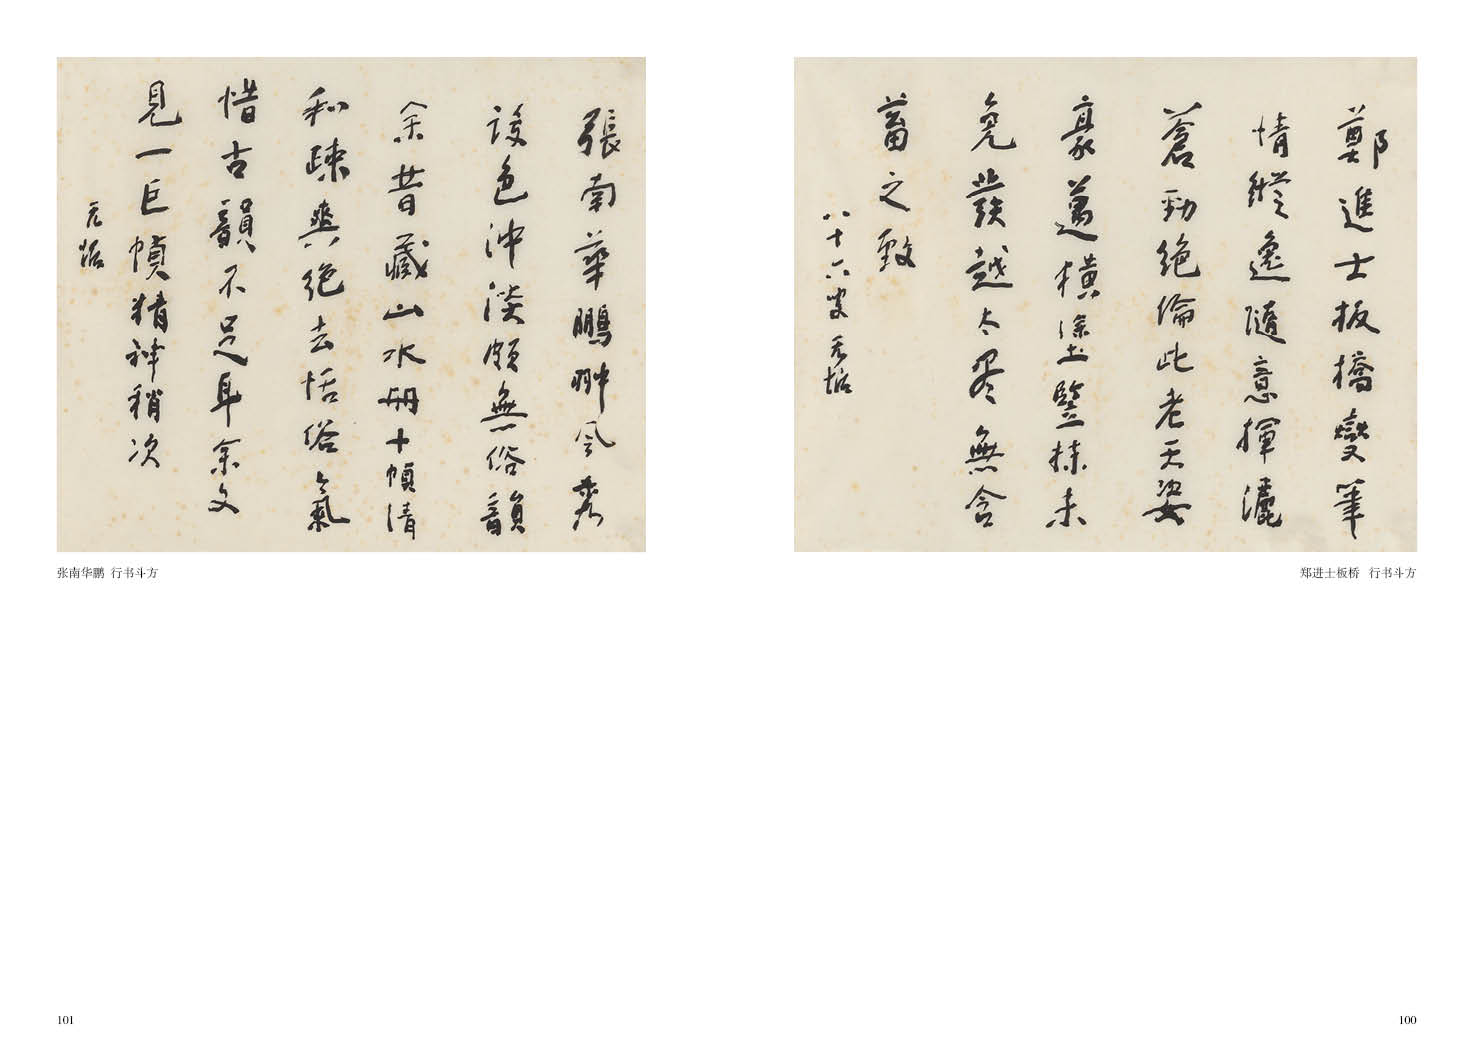 鄭進士板橋變筆
情縱逸隨意揮灑
蒼勁絕倫此老天姿
豪邁橫塗豎抹未
免發越太盡無含
蓄之致
八十六叟元
郑进士板桥 行书斗方
100
張南華鵬翀風秀
設色沖淡頗無俗韻
余昔藏山水冊十幀清
和疎爽絕去恬俗氣
惜古韻不足耳余又
見一巨幀精神稍次
元
张南华鹏 行书斗方
101